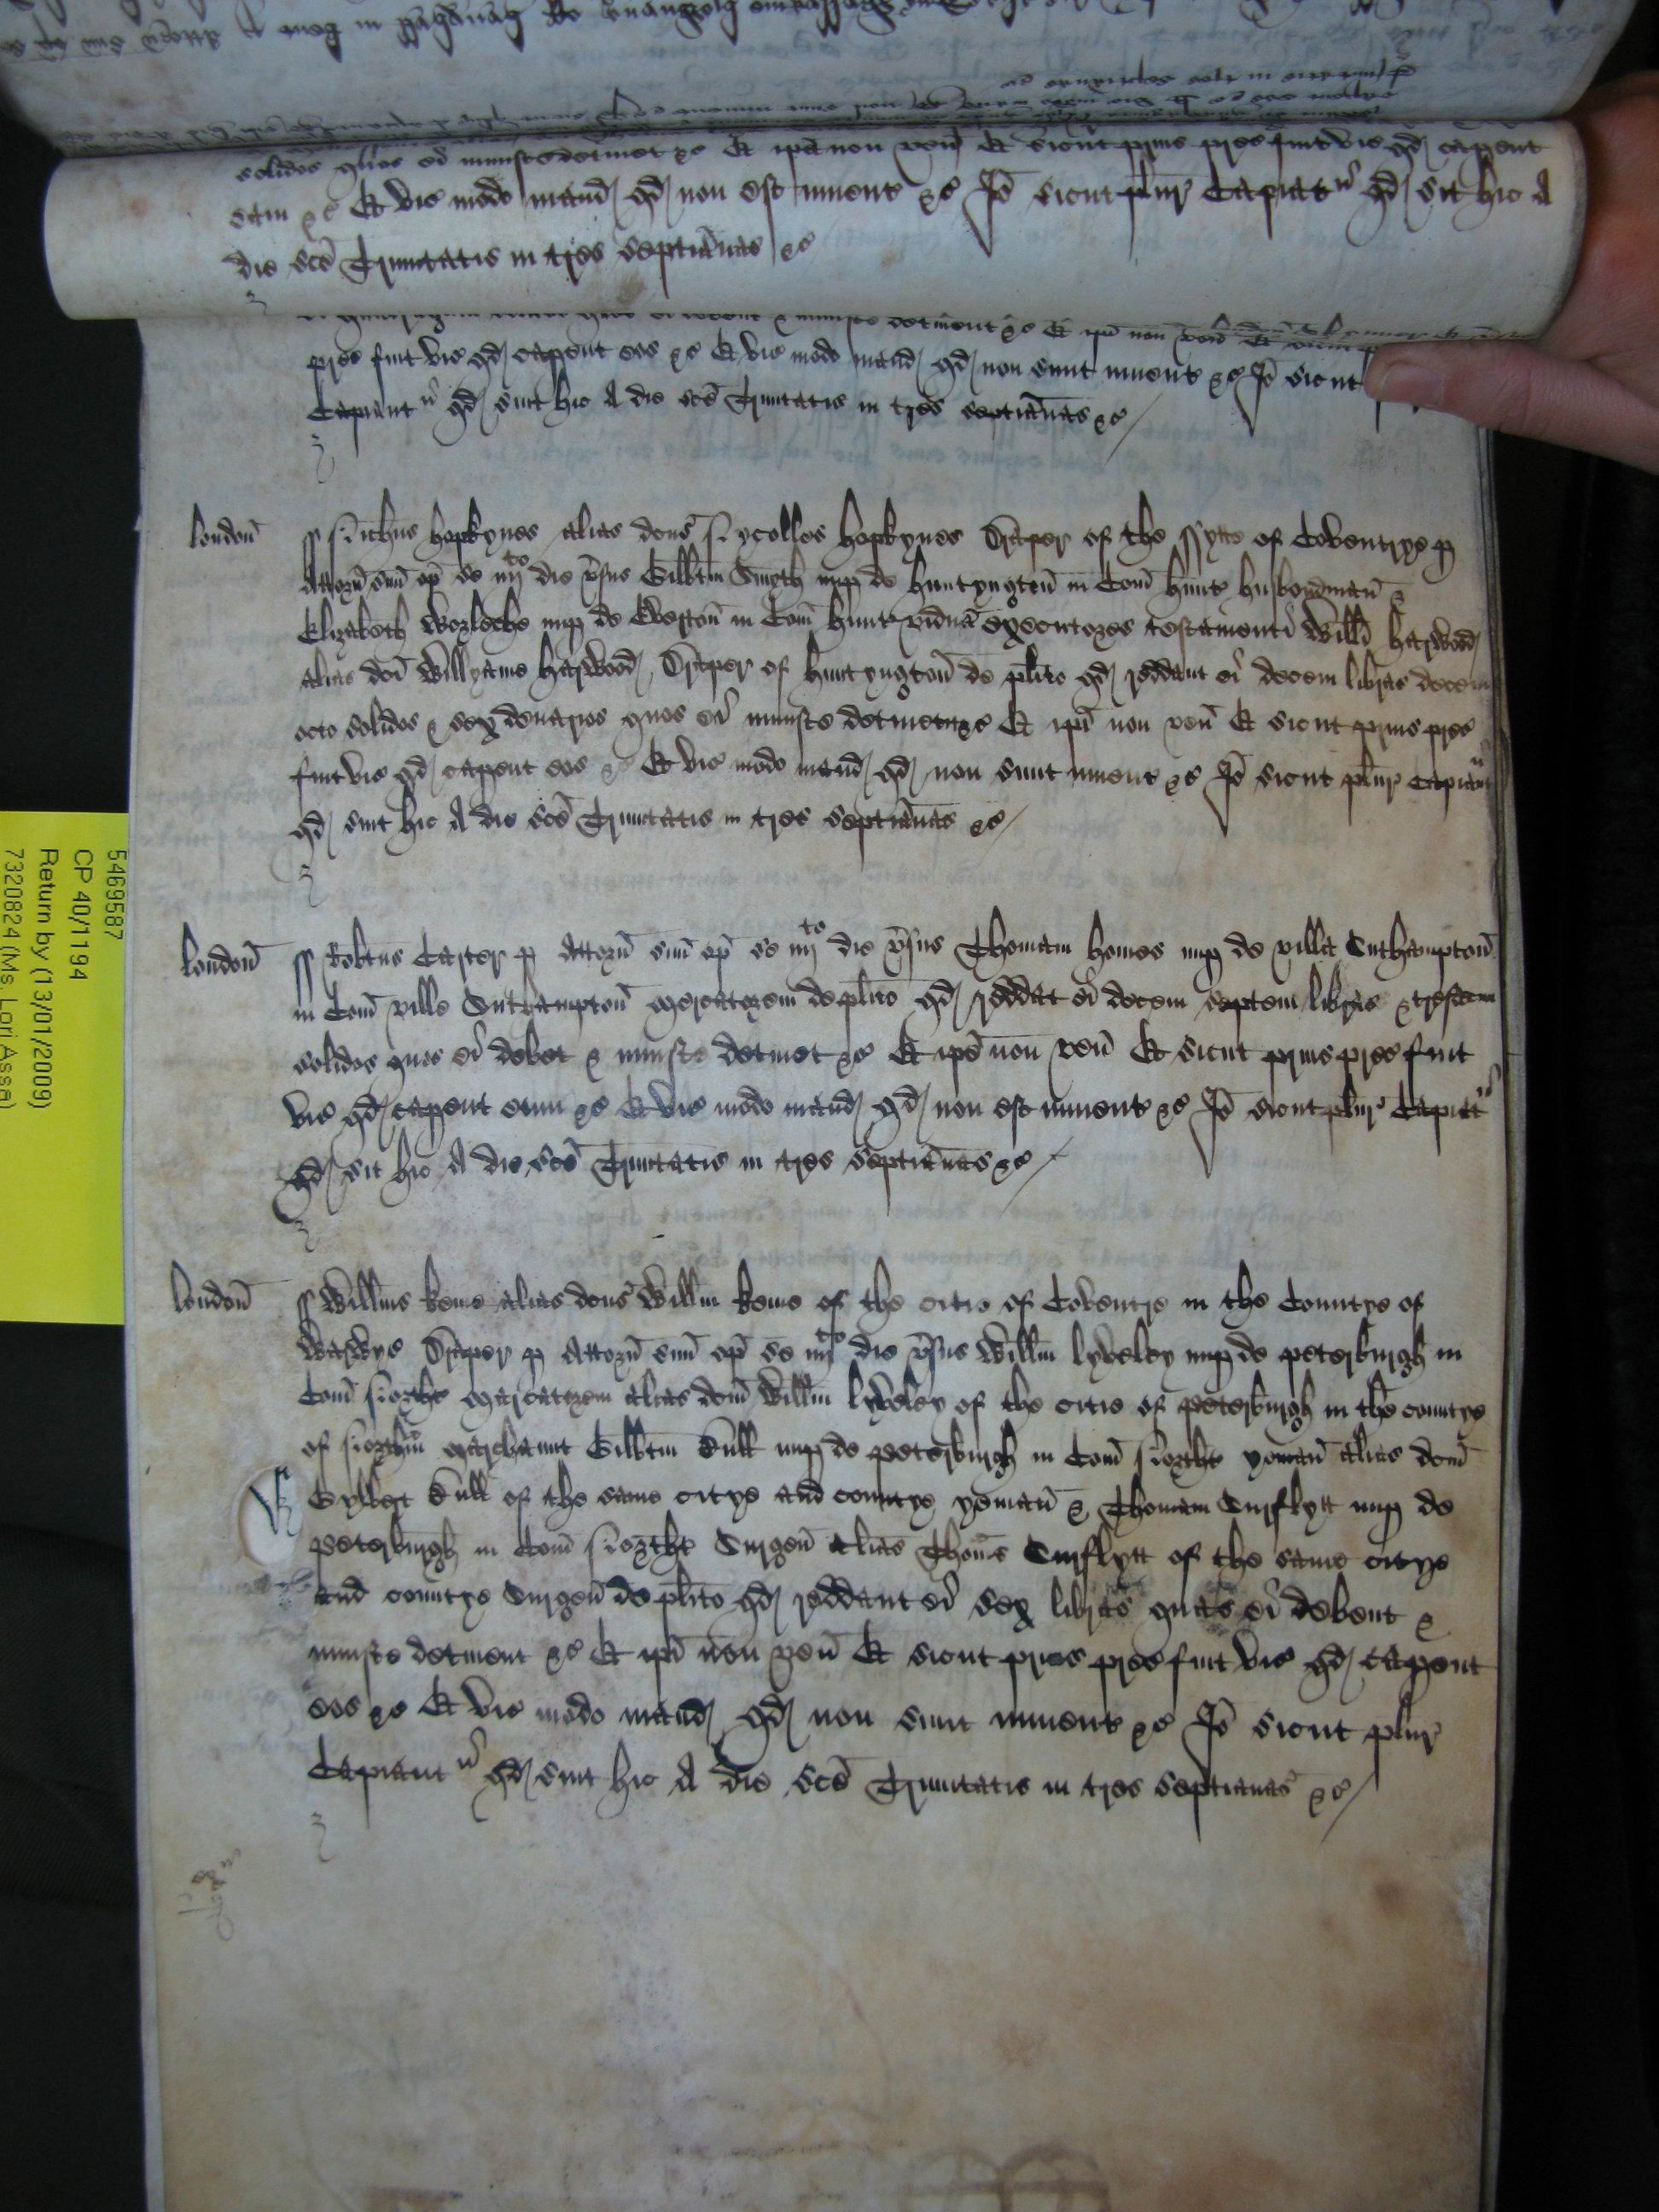 solidos quos ei iniuste detinet &c Et ipa non ven Et sicut prius prec fuit vic qd capent
eam &c Et vic modo mand qd non est invent &c Io sicut plur Capiat r qd sit hic A
die sce Trinitatis in tres septianas &c
iniuste detinent &c Et ipi non ven Et sicut
prec fuit vic qd capent eos &c Et vic modo mand qd non sunt invent &c Io sicut
Capiant r qd sint hic A die sce Trinitatis in tres septianas &c
london ss Nichus hopkynes alias dcus Nycolles hopkynes Draper of the Cytte of Coventrye p
Attorn suu op se iiij to die vsus Gilbtm Smyth nup de huntyngton in Com hunt husbondman &
Elizabeth Worleche nup de Weston in Com hunt vidua executores testamenti Willi harwood
alias dci Willyame harwood Draper of huntyngton de plito qd reddant ei decem libras decem
octo solidos & sex denarios quos ei iniuste detinent &c Et ipi non ven Et sicut prius prec
fuit vic qd capent eos &c Et vic modo mand qd non sunt invent &c Io sicut plur Capiant r
qd sint hic A die sce Trinitatis in tres septianas &c
london ss Robtus Carter p Attorn suu op se iiij to die vsus Thomam homes nup de villa Suthampton
in Com ville Suthampton mercatorem de plito qd reddat ei decem septem libras & tresdecim
solidos quos ei debet & iniuste detinet &c Et ipe non ven Et sicut prius prec fuit
vic qd capent eum &c Et vic modo mand qd non est invent &c Io sicut plur Capiat r
qd sit hic A die sce Trinitatis in tres septianas &c
london ss Willms keme alias dcus Willm keme of the citie of Coventre in the Countye of
Warwye Draper p Attorn suu op se iiij to die vsus Willm lyveley nup de peterburgh in
Com Northt mercatorem alias dcm Willm lyveley of the citie of peterburgh in the countye
of Northm marchaunt Gilbtm Bull nup de peterburgh in Com Northt yoman alias dcm
Gylbert Bull of the same citye and countye yeman & Thomam Surflytt nup de
peterburgh in Com Northt Surgen alias Thoms Surflytt of the same citye
and countye Surgen de plito qd reddant ei sex libras quas ei debent &
iniuste detinent &c Et ipi non ven Et sicut prius prec fuit vic qd capent
eos &c Et vic modo mand qd non sunt invent &c Io sicut plur
Capiant r qd sint hic A die sce Trinitatis in tres septianas &c
5469587
CP 40/1194
Return by (13/01/2009)
7320824 (Ms. Lori Asse)